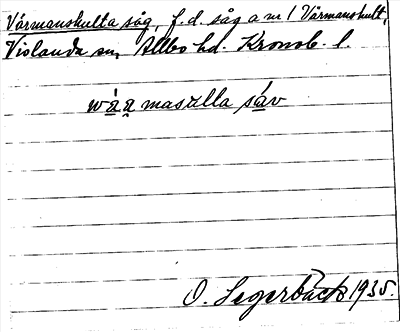 Vårmanshulta såg, f.d. såg a nr 1 Vårmanshult,
Vislanda sn, Allbo hd. Kronob. l.
sáv
O. Segerbäck 1935.